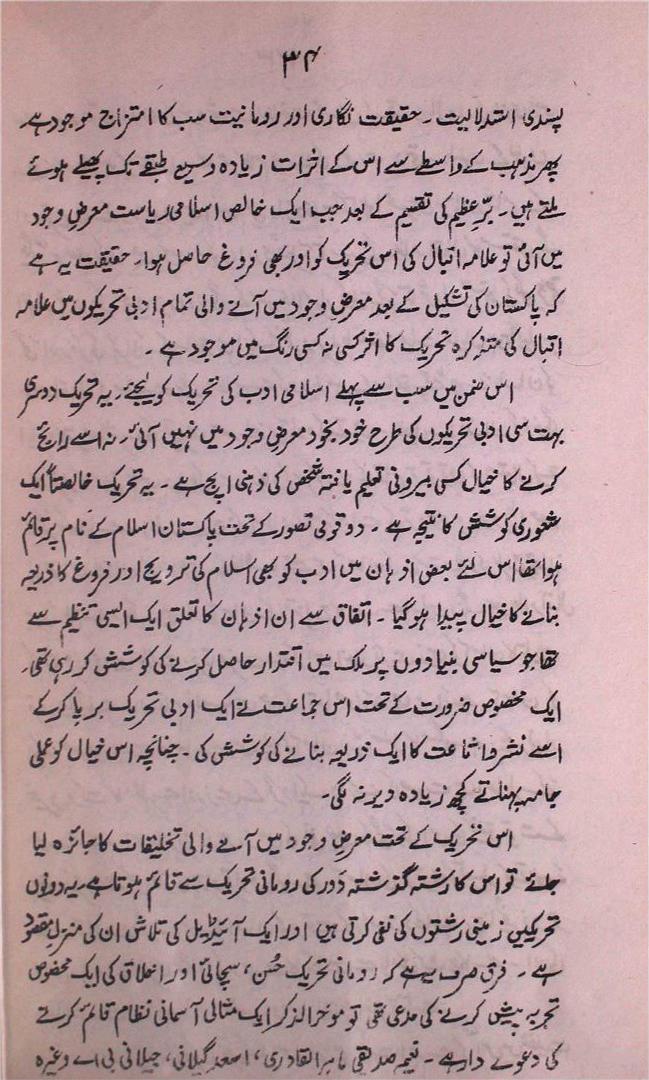 ۳۴
پسندی استدلالیت ۔ حقیقت نگاری اور رومانیت سب کا امتزاج موجود ہے
پھر مذہب کے واسطے سے اس کے اثرات زیادہ وسیع طبقے تک پھیلے ہوئے
ملتے ہیں ۔ برِّعظیم کی تقسیم کے بعد جب ایک خالص اسلامی ریاست معرضِ وجود
میں آئی تو علامہ اقبال کی اس تحریک کو اور بھی فروغ حاصل ہوا۔ حقیقت یہ ہے
کہ پاکستان کی تشکیل کے بعد معرضِ وجود میں آنے والی تمام ادبی تحریکوں میں علامہ
اقبال کی متذکرہ تحریک کا اثر کسی نہ کسی رنگ میں موجود ہے ۔
اس ضمن میں سب سے پہلے اسلامی ادب کی تحریک کو لیجئے۔ یہ تحریک دوسری
بہت سی ادبی تحریکوں کی طرح خود بخود معرضِ وجود میں نہیں آئی ۔ نہ اسے رائج
کرنے کا خیال کسی بیرونی تعلیم یافتہ شخص کی ذہنی اپج ہے ۔ یہ تحریک خالصتاً ایک
شعوری کوشش کا نتیجہ ہے ۔ دو قومی تصور کے تحت پاکستان اسلام کے نام پر قائم
ہوا تھا اس لئے بعض اذہان میں ادب کو بھی اسلام کی ترویج اور فروغ کا ذریعہ
بنانے کا خیال پیدا ہو گیا ۔ اتفاق سے ان اذہان کا تعلق ایک ایسی تنظیم سے
تھا جو سیاسی بنیادوں پر ملک میں اقتدار حاصل کرنے کی کوشش کر رہی تھی۔
ایک مخصوص ضرورت کے تحت اس جماعت نے ایک ادبی تحریک برپا کر کے
اسے نشر و اشاعت کا ایک ذریعہ بنانے کی کوشش کی ۔ چنانچہ اس خیال کو عملی
جامہ پہناتے کچھ زیادہ دیر نہ لگی۔
اس تحریک کے تحت معرضِ وجود میں آنے والی تخلیقات کا جائزہ لیا
جائے تو اس کا رشتہ گذشتہ دَور کی رومانی تحریک سے قائم ہوتا ہے۔ یہ دونوں
تحریکیں زمینی رشتوں کی نفی کرتی ہیں اور ایک آئیڈیل کی تلاش ان کی منزلِ مقصود
ہے ۔ فرق صرف یہ ہے کہ رومانی تحریک حُسن، سچائی اور اخلاق کی ایک مخصوص
تجربہ پیش کرنے کی مدعی تھی تو موخرالذکر ایک مثالی آسمانی نظام قائم کرنے
کی دعوے دار ہے ۔ نعیم صدیقی ماہر القادری، اسعد گیلانی، جیلانی بی اے وغیرہ